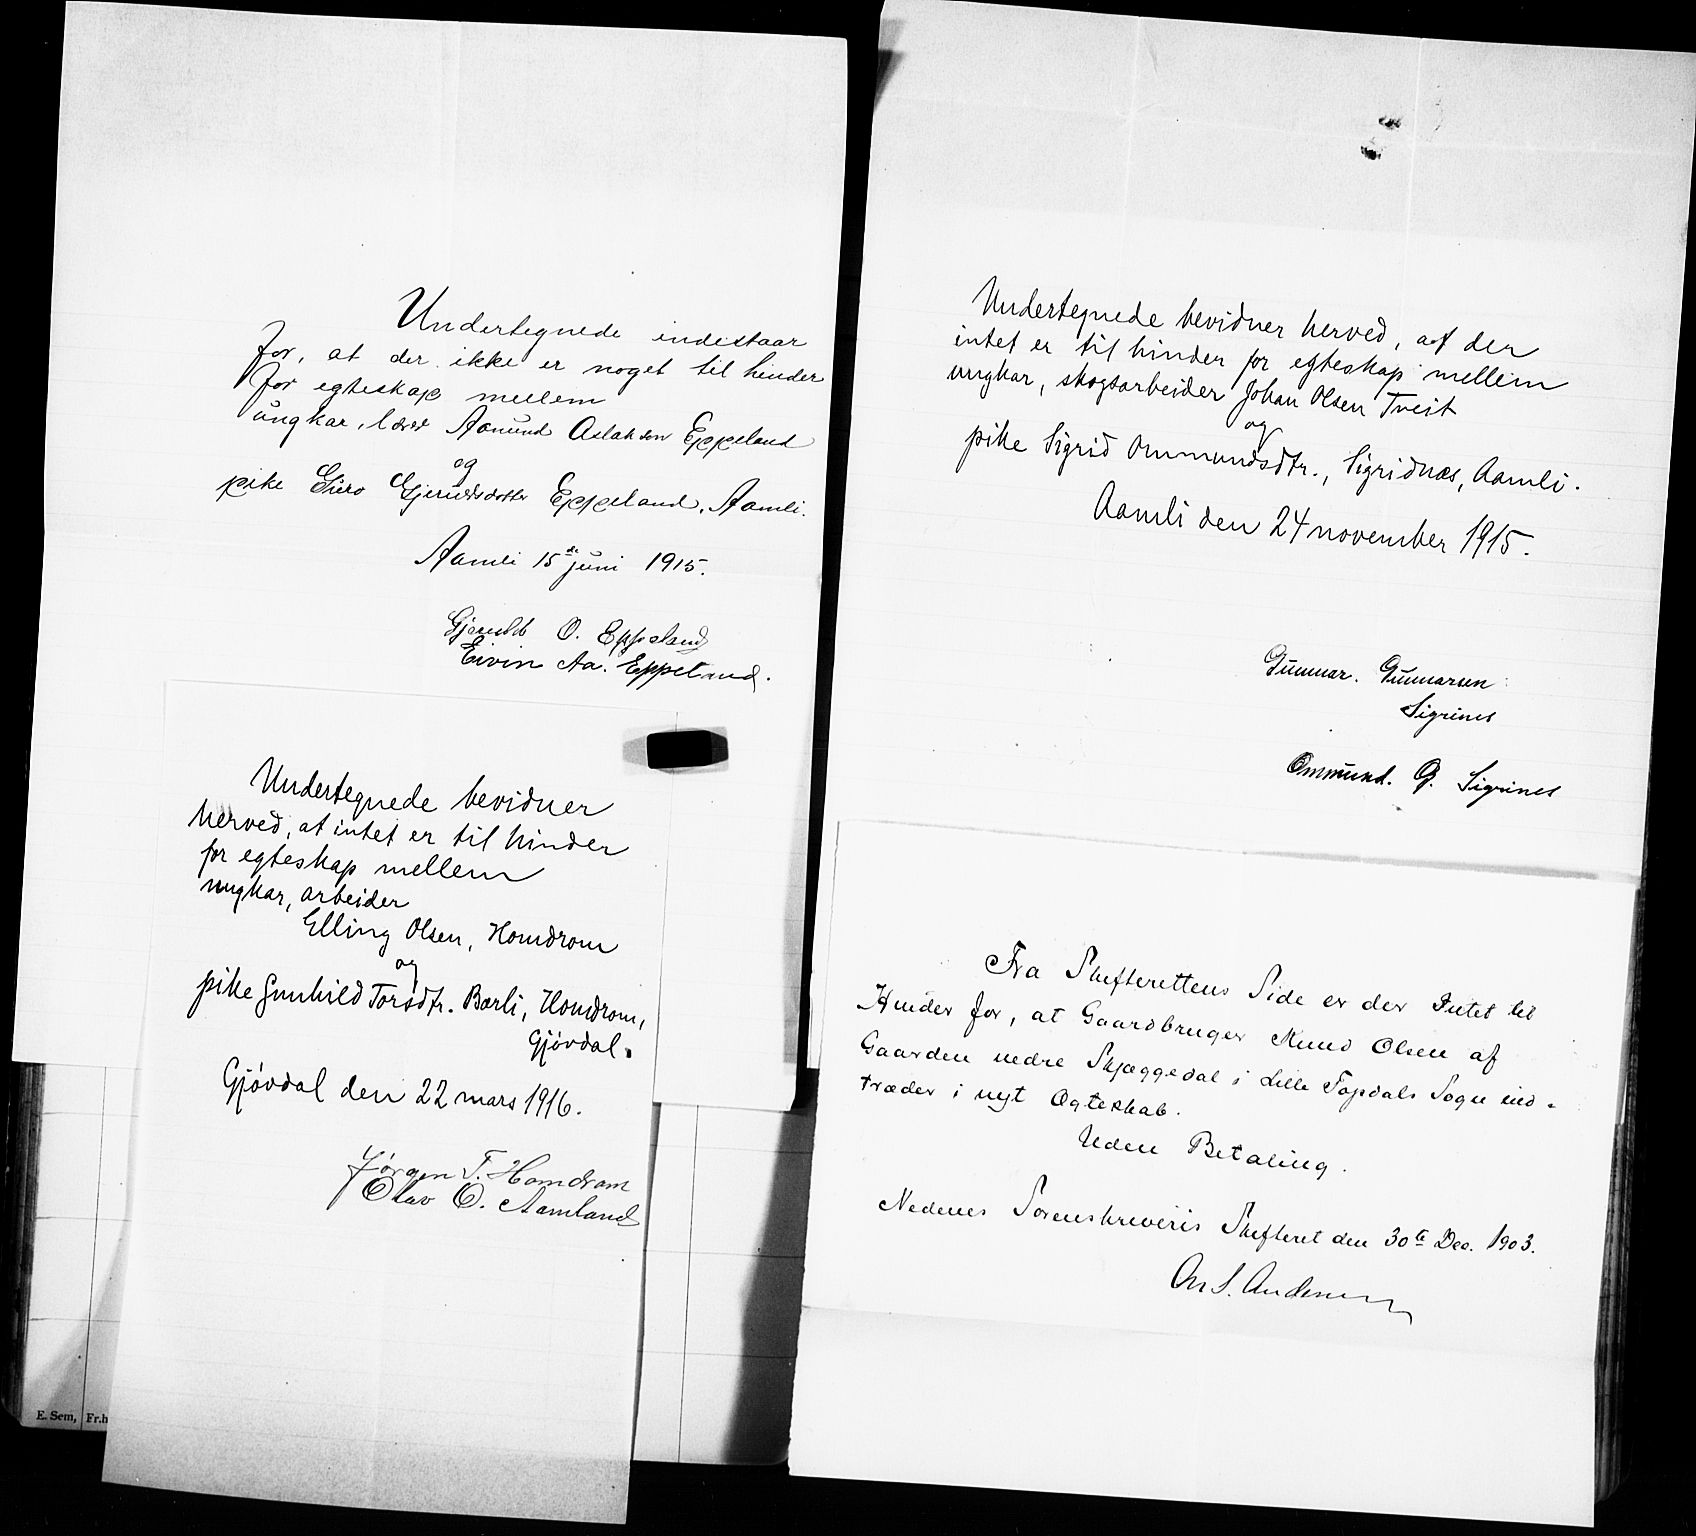 Undertegnede indestaar
for, at der ikke er noget til hinder
for egteskap mellem
ungkar, lærer Aamund Aslaksen Eppeland
og
pike Siro Gjerulsdotter Eppeland, Aamli.
Aamli 15de juni 1915.
Gjeruld O. Eppeland
Eivin Aa. Eppeland.
Undertegnede bevidner
herved, at intet er til hinder
for egteskap mellem
ungkar, arbeider
Elling Olsen, Homdrom
og
pike Gunhild Torsdtr. Barli, Homdrom,
Gjövdal.
Gjövdal den 22 mars 1916.
Jørgen T. Homdrom
Olav O. Aamland
E. Sem, Fr.h
Undertegnede bevidner herved, at der
intet er til hinder for egteskap mellem
ungkar, skogsarbeider Johan Olsen Tveit
og
pike Sigrid Ommundsdtr., Sigridnæs, Aamli.
Aamli den 24 november 1915.
Gunnar. Gunnarsen
Sigrines
Ommund. G. Sigrines
Fra Skifterettens Side er der Intet til
Hinder for, at Gaardbruger Knud Olsen af
Gaarden nedre Skjæggedal i Lille Topdals Sogn ind-
træder i nyt Ægteskab.
Uden Betaling.
Nedenes Sorenskriveris Skifteret den 30te Dec. 1903.
S. Andersen